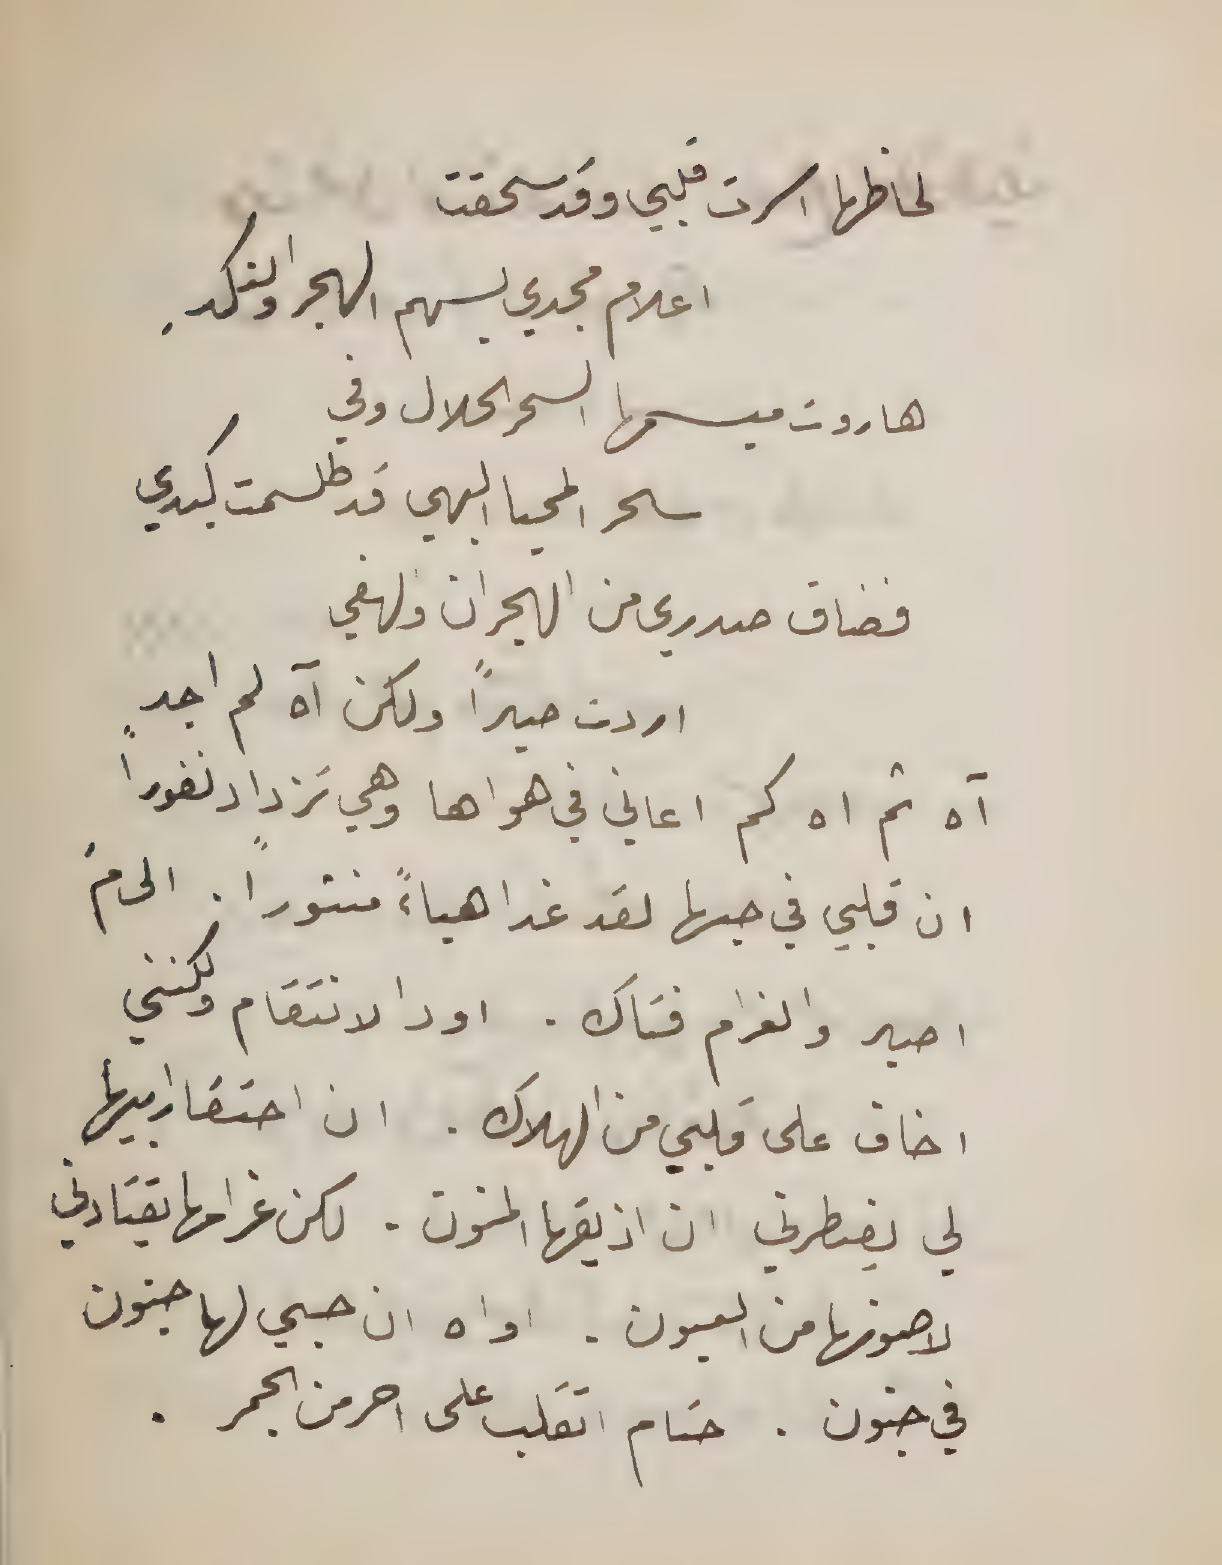 لحاظها اسرت قلبي وقد سحقت
اعلام مجدي بسهم الهجر والنكد.
هاروت مبسمها السحر الحلال وفي
سحر المحيا البهي قد طلسمت كبدي
فضاق صدري من الهجران والهفي
اردت صبراً ولكن آه لم اجد
آه ثم اه كم اعاني في هواها وهي تزداد نفوراً
ان قلبي في حبها لقد غدا هباءً منثوراً. الى مَ
اصبر والغرام فتاك. اود الانتقام ولكنني
اخاف على قلبي من الهلاك. ان احتقار ابيها
لي يضطرني ان اذيقها المنون. لكن غرامها يقتادني
لاصونها من العيون. اواه ان حبي لها جنون
في جنون. حتام اتقلب على احر من الجمر.